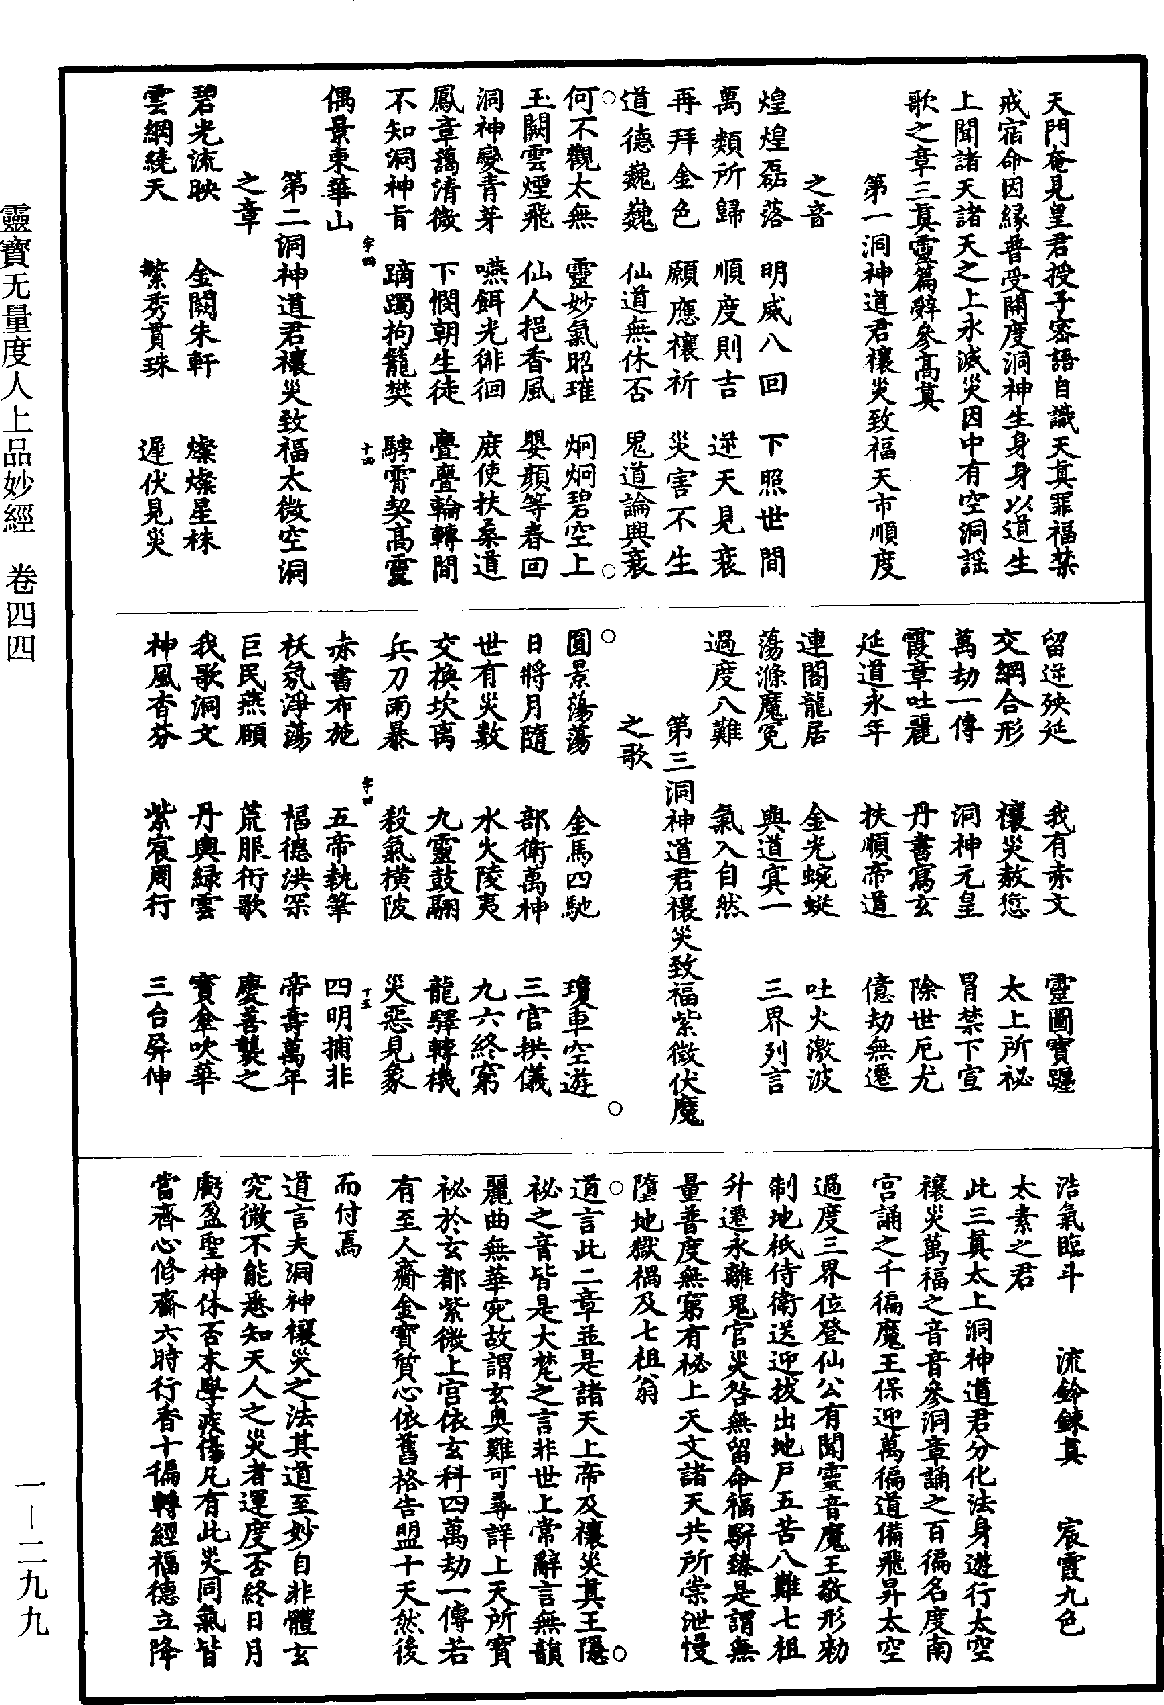 天門奄見皇君授子密語自識天真罪福禁
戒宿命因緣普受開度洞神生身身以道生
上聞諸天諸天之上永滅災因中有空洞謠
歌之章三真靈篇辭參高真
第一洞神道君禳災致福天市順度
之音
煌煌磊落　明威八回　下照世間
萬類所歸　順度則吉　逆天見衰
再拜金色　願應禳祈　災害不生
道德巍巍　仙道無休否　鬼道論興衰
何不觀太無　靈妙氣昭璀　炯炯碧空上
玉闕雲煙飛　仙人挹香風　嬰顏等春回
洞神變青芽　嚥餌光徘徊　庶使扶桑道
鳳章藹清微　下憫朝生徒　亹亹輪轉間
不知洞神旨　蹢躅拘籠樊　騁霄契高靈
偶景東華山
字四　十四
第二洞神道君禳災致福太微空洞
之章
碧光流映　金闕朱軒　燦燦星株
雲綱繞天　繁秀貫珠　遲伏見災
留逆殃延　我有赤文　靈圖寶躔
交綱合形　禳災赦愆　太上所祕
萬劫一傳　洞神元皇　冒禁下宣
霞章吐麗　丹書寫玄　除世厄尤
延道永年　扶順帝道　億劫無遷
連閣龍居　金光蜿蜒　吐火激波
蕩滌魔冤　與道冥一　三界列言
過度八難　氣入自然
第三洞神道君禳災致福紫微伏魔
之歌
圓景蕩蕩　金馬四馳　瓊車空遊
日將月隨　部衛萬神　三官拱儀
世有災數　水火陵夷　九六終窮
交換坎离　九靈鼓翮　龍驛轉機
兵刀雨暴　殺氣橫陂　災惡見象
字四　十五
赤書布施　五帝執筆　四明捕非
秡氛淨蕩　福德洪罙　帝壽萬年
巨民燕願　荒服衎歌　慶善襲之
我歌洞文　丹輿綠雲　寶傘吹華
神風香芬　紫宸周行　三台屏伸
浩氣臨斗　流鈴鍊真　宸霞九色
太素之君
此三真太上洞神道君分化法身遊行太空
禳災萬福之音音參洞章誦之百徧名度南
宮誦之千徧魔王保迎萬徧道備飛昇太空
過度三界位登仙公有聞靈音魔王敬形勑
制地祇侍衛送迎拔出地戶五苦八難七祖
升遷永離鬼官災咎無留命福駢臻是謂無
量普度無窮有祕上天文諸天共所崇泄慢
墮地獄禍及七祖翁
道言此二章並是諸天上帝及禳災真王隱
祕之音皆是大梵之言非世上常辭言無韻
麗曲無華宛故謂玄奧難可尋詳上天所寶
祕於玄都紫微上宮依玄科四萬劫一傳若
有至人齎金寶質心依舊格告盟十天然後
而付焉
道言夫洞神禳災之法其道至妙自非體玄
究微不能悉知天人之災者運度否終日月
虧盈聖神休否末學疾傷凡有此災同氣皆
當齊心修齋六時行香十徧轉經福德立降
靈寶无量度人上品妙經　卷四四
一—二九九